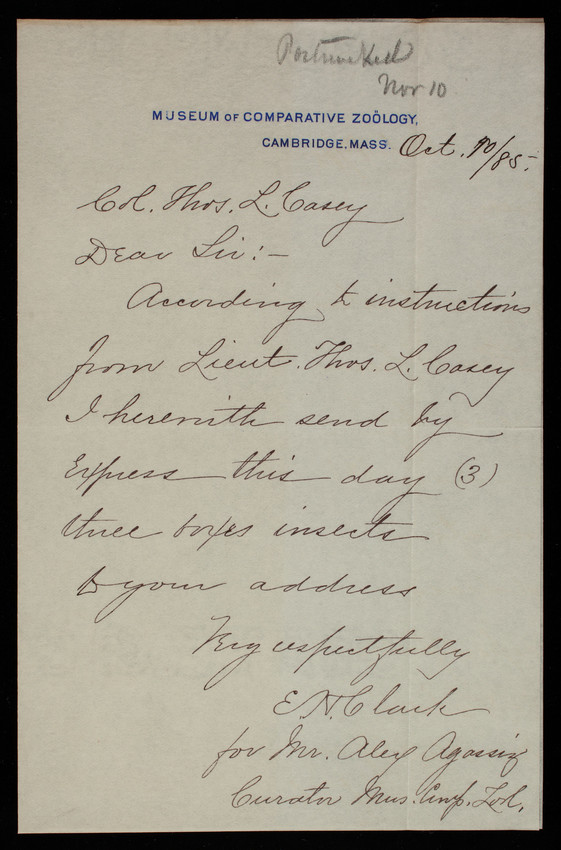 Postmarked
Nov 10
MUSEUM OF COMPARATIVE ZOÖLOGY,
CAMBRIDGE, MASS. Oct. 10/85.
Col. Thos. L. Casey
Dear Sir:—
According to instructions
from Lieut. Thos. L. Casey
I herewith send by
Express this day (3)
three boxes insects
to your address
Very respectfully
E. H. Clark
for Mr. Alex Agassiz
Curator Mus. Comp. Zol.